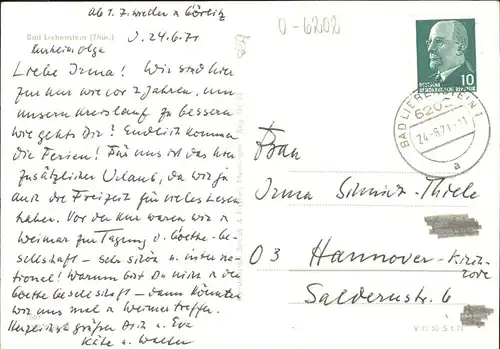 ab 1. 7. wieder n Görlitz
0-6202
Bad Liebenstein (Thür.)
d. 24.6.71
Kurheim Olga
Liebe Irma! Wir sind hier
zur Kur wie vor 2 Jahren, um
unsern Kreislauf zu bessern
wie gehts Dir? Endlich kommen
die Ferien! Für uns ist das hier
zusätzlicher Urlaub, da wir ja
auch die Freizeit für vieles Lesen
haben. Vor der Kur waren wir in
Weimar zur Tagung d. Goethe-Ge-
sellschaft – sehr schön u. interna-
tional! Warum bist Du nicht in der
Goethe Gesellschaft – dann könnten
wir uns mal in Weimar treffen.
Herzlichst grüßen Dich u. Eva
Käte u. Walter
DEUTSCHE
DEMOKRATISCHE REPUBLIK
10
BAD LIEBENSTEIN 1
6202
24.-6.71
a
Frau
Irma Schmidt-Thiele
03 Hannover-Kirch-
rode
Saldernstr. 6